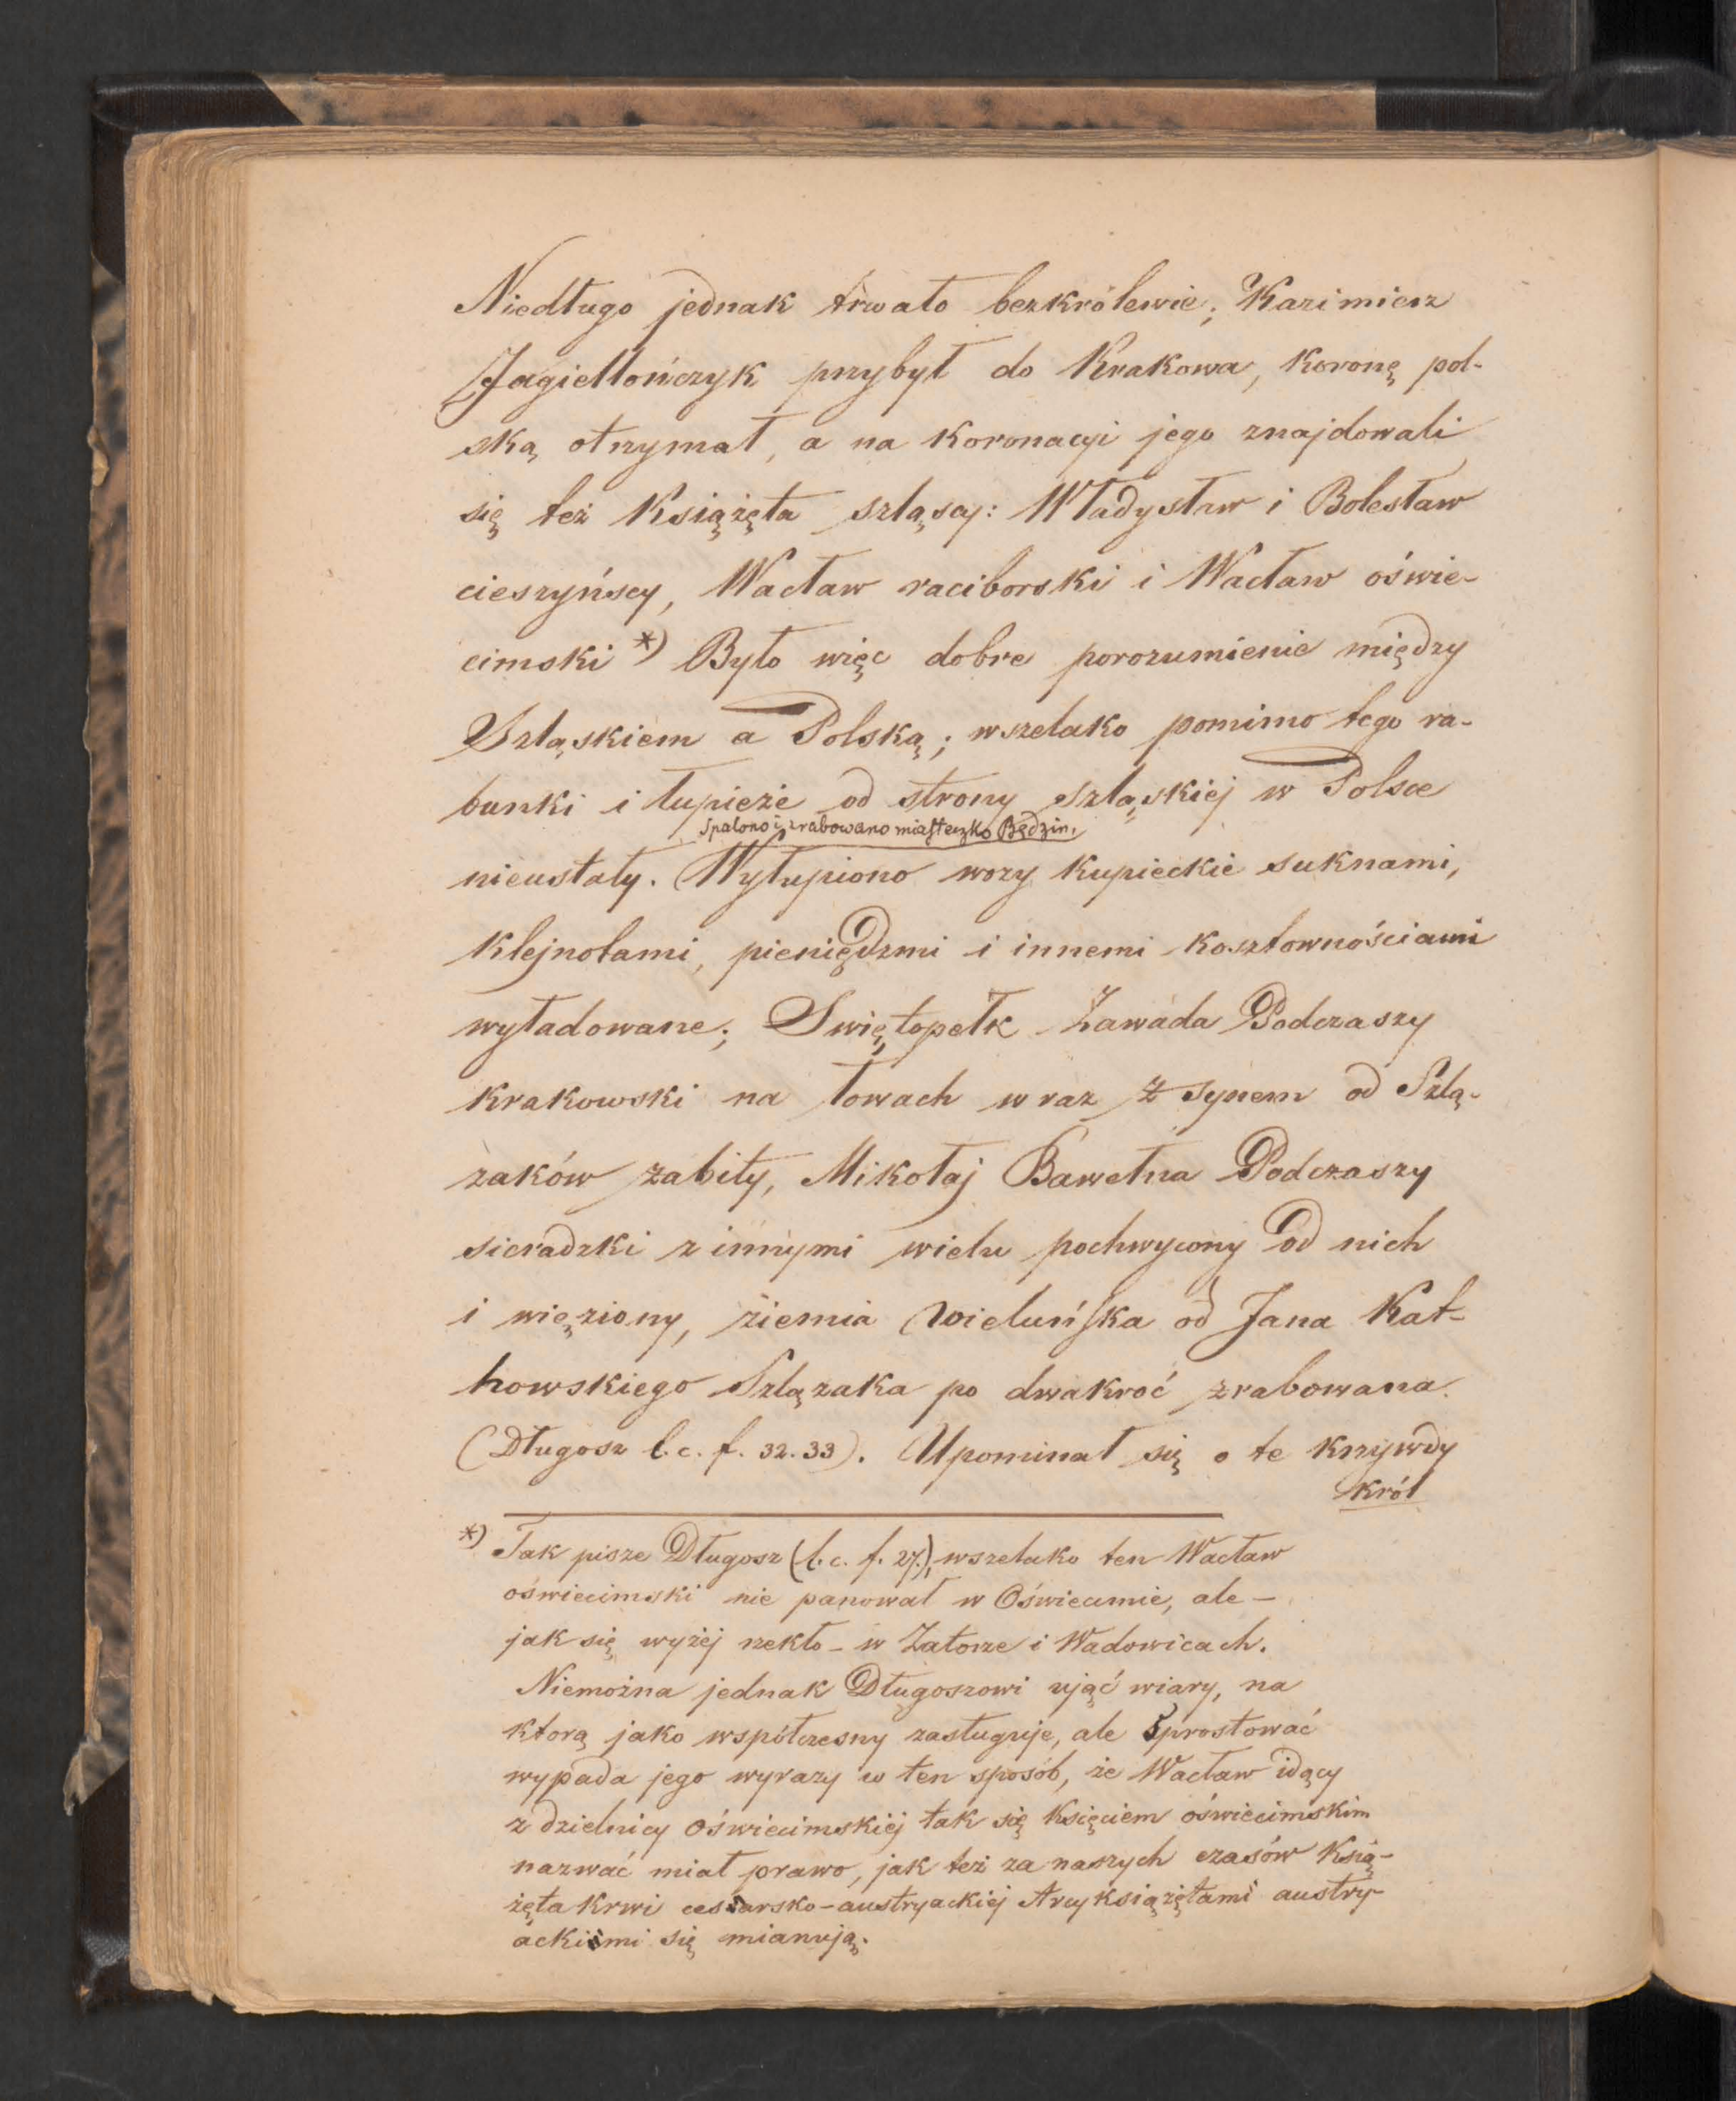 Niedługo jednak trwało bezkrólewie; Kazimierz
Jagiellończyk przybył do Krakowa, koronę pol-
ską otrzymał, a na koronacyi jego znajdowali
się też Książęta szląscy: Władysław i Bolesław
cieszyńscy, Wacław raciborski i Wacław oświe-
cimski *) Było więc dobre porozumienie między
Szląskiem a Polską; wszelako pomimo tego ra-
bunki i łupieże od strony szląskiej w Polsce
Spalono i zrabowano miasteczko Będzin,
nieustały. Wyłupiono wozy kupieckie suknami,
klejnotami, pieniędzmi i innemi kosztownościami
wyładowane; Swiętopełk Zawada Podczaszy
krakowski na łowach wraz z synem od Szlą-
zaków zabity, Mikołaj Bawełna Podczaszy
sieradzki z innymi wielu pochwycony od nich
i więziony, ziemia Wieluńska od Jana Kat-
howskiego Szlązaka po dwakroć zrabowana.
(Długosz l. c. f. 32. 33). Upominał się o te krzywdy
król
*) Tak pisze Długosz (l. c. f. 27.), wszelako ten Wacław
oświecimski nie panował w Oświecimie, ale –
jak się wyżej rzekło – w Zatorze i Wadowicach.
Niemożna jednak Długoszowi ująć wiary, na
ktorą jako współczesny zasługuje, ale sprostować
wypada jego wyrazy w ten sposób, że Wacław idący
z dzielnicy Oświecimskiej tak się Księciem oświecimskim
nazwać miał prawo, jak też za naszych czasów Ksią-
żęta krwi cesarsko-austryackiej Arcyksiążętami austry-
ackimi się mianują.